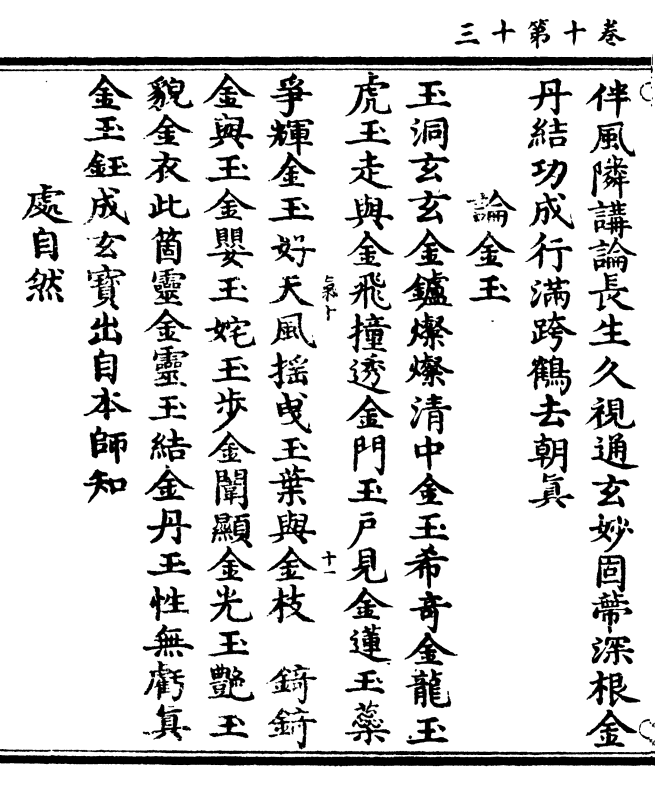 三十第十卷
伴風隣講論長生久視通玄妙固蔕深根金
丹結功成行滿跨鶴去朝眞
論金玉
玉洞玄玄金鑪燦燦清中金玉希奇金龍玉
虎玉走與金飛撞透金門玉戶見金蓮玉蘂
氣十
十一
爭輝金玉好天風搖曵玉葉與金枝　錡錡
金與玉金嬰玉姹玉步金闈顯金光玉艷玉
貌金衣此箇靈金靈玉結金丹玉性無虧眞
金玉鈺成玄寶出自本師知
處自然